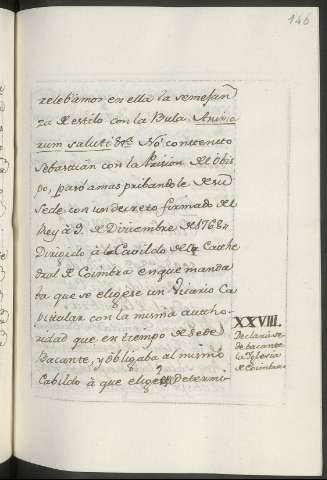 146
zelebamos en ella la semejan
za de estilo con la Bula Anima
rum saluti &ra. No contento
Sebastian con la Prision del Obis
po, pasó a mas pribandole de su
Sede con un decreto firmado del
Rey à 9. de Diciembre de 1768.
Dirigido à la Cavildo de la Cathe
dral de Coimbra en que manda
ba que se eligiese un Vicario Ca
pitular con la misma autho
ridad que en tiempo de Sede
Bacante, y obligaba al mismo
Cabildo à que eligese Determi-
XXVIII.
Declarase
de bacante
la Iglesia
de Coimbra